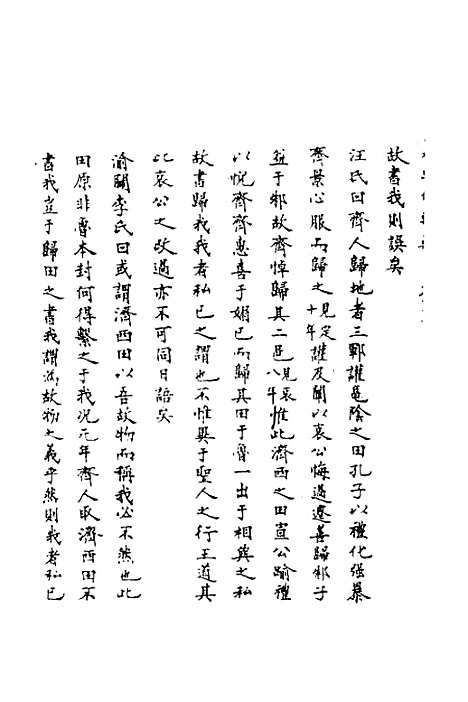 故書我則誤矣
汪氏曰齊人歸地者三鄆讙龜陰之田孔子以禮化强暴
齊景心服而歸之見定十年讙及闡以哀公悔過遷善歸邾子
益于邾故齊悼歸其二邑見哀八年惟此濟西之田宣公踰禮
以悅齊齊惠喜于媚已而歸其田于魯一出于相與之私
故書歸我我者私已之謂也不惟異于聖人之行王道其
比哀公之改過亦不可同日語矣
渝關李氏曰或謂濟西田以吾故物而稱我必不然也此
田原非魯本封何得繫之于我况元年齊人取濟西田不
書我豈于歸田之書我謂為故物之義乎然則我者私已